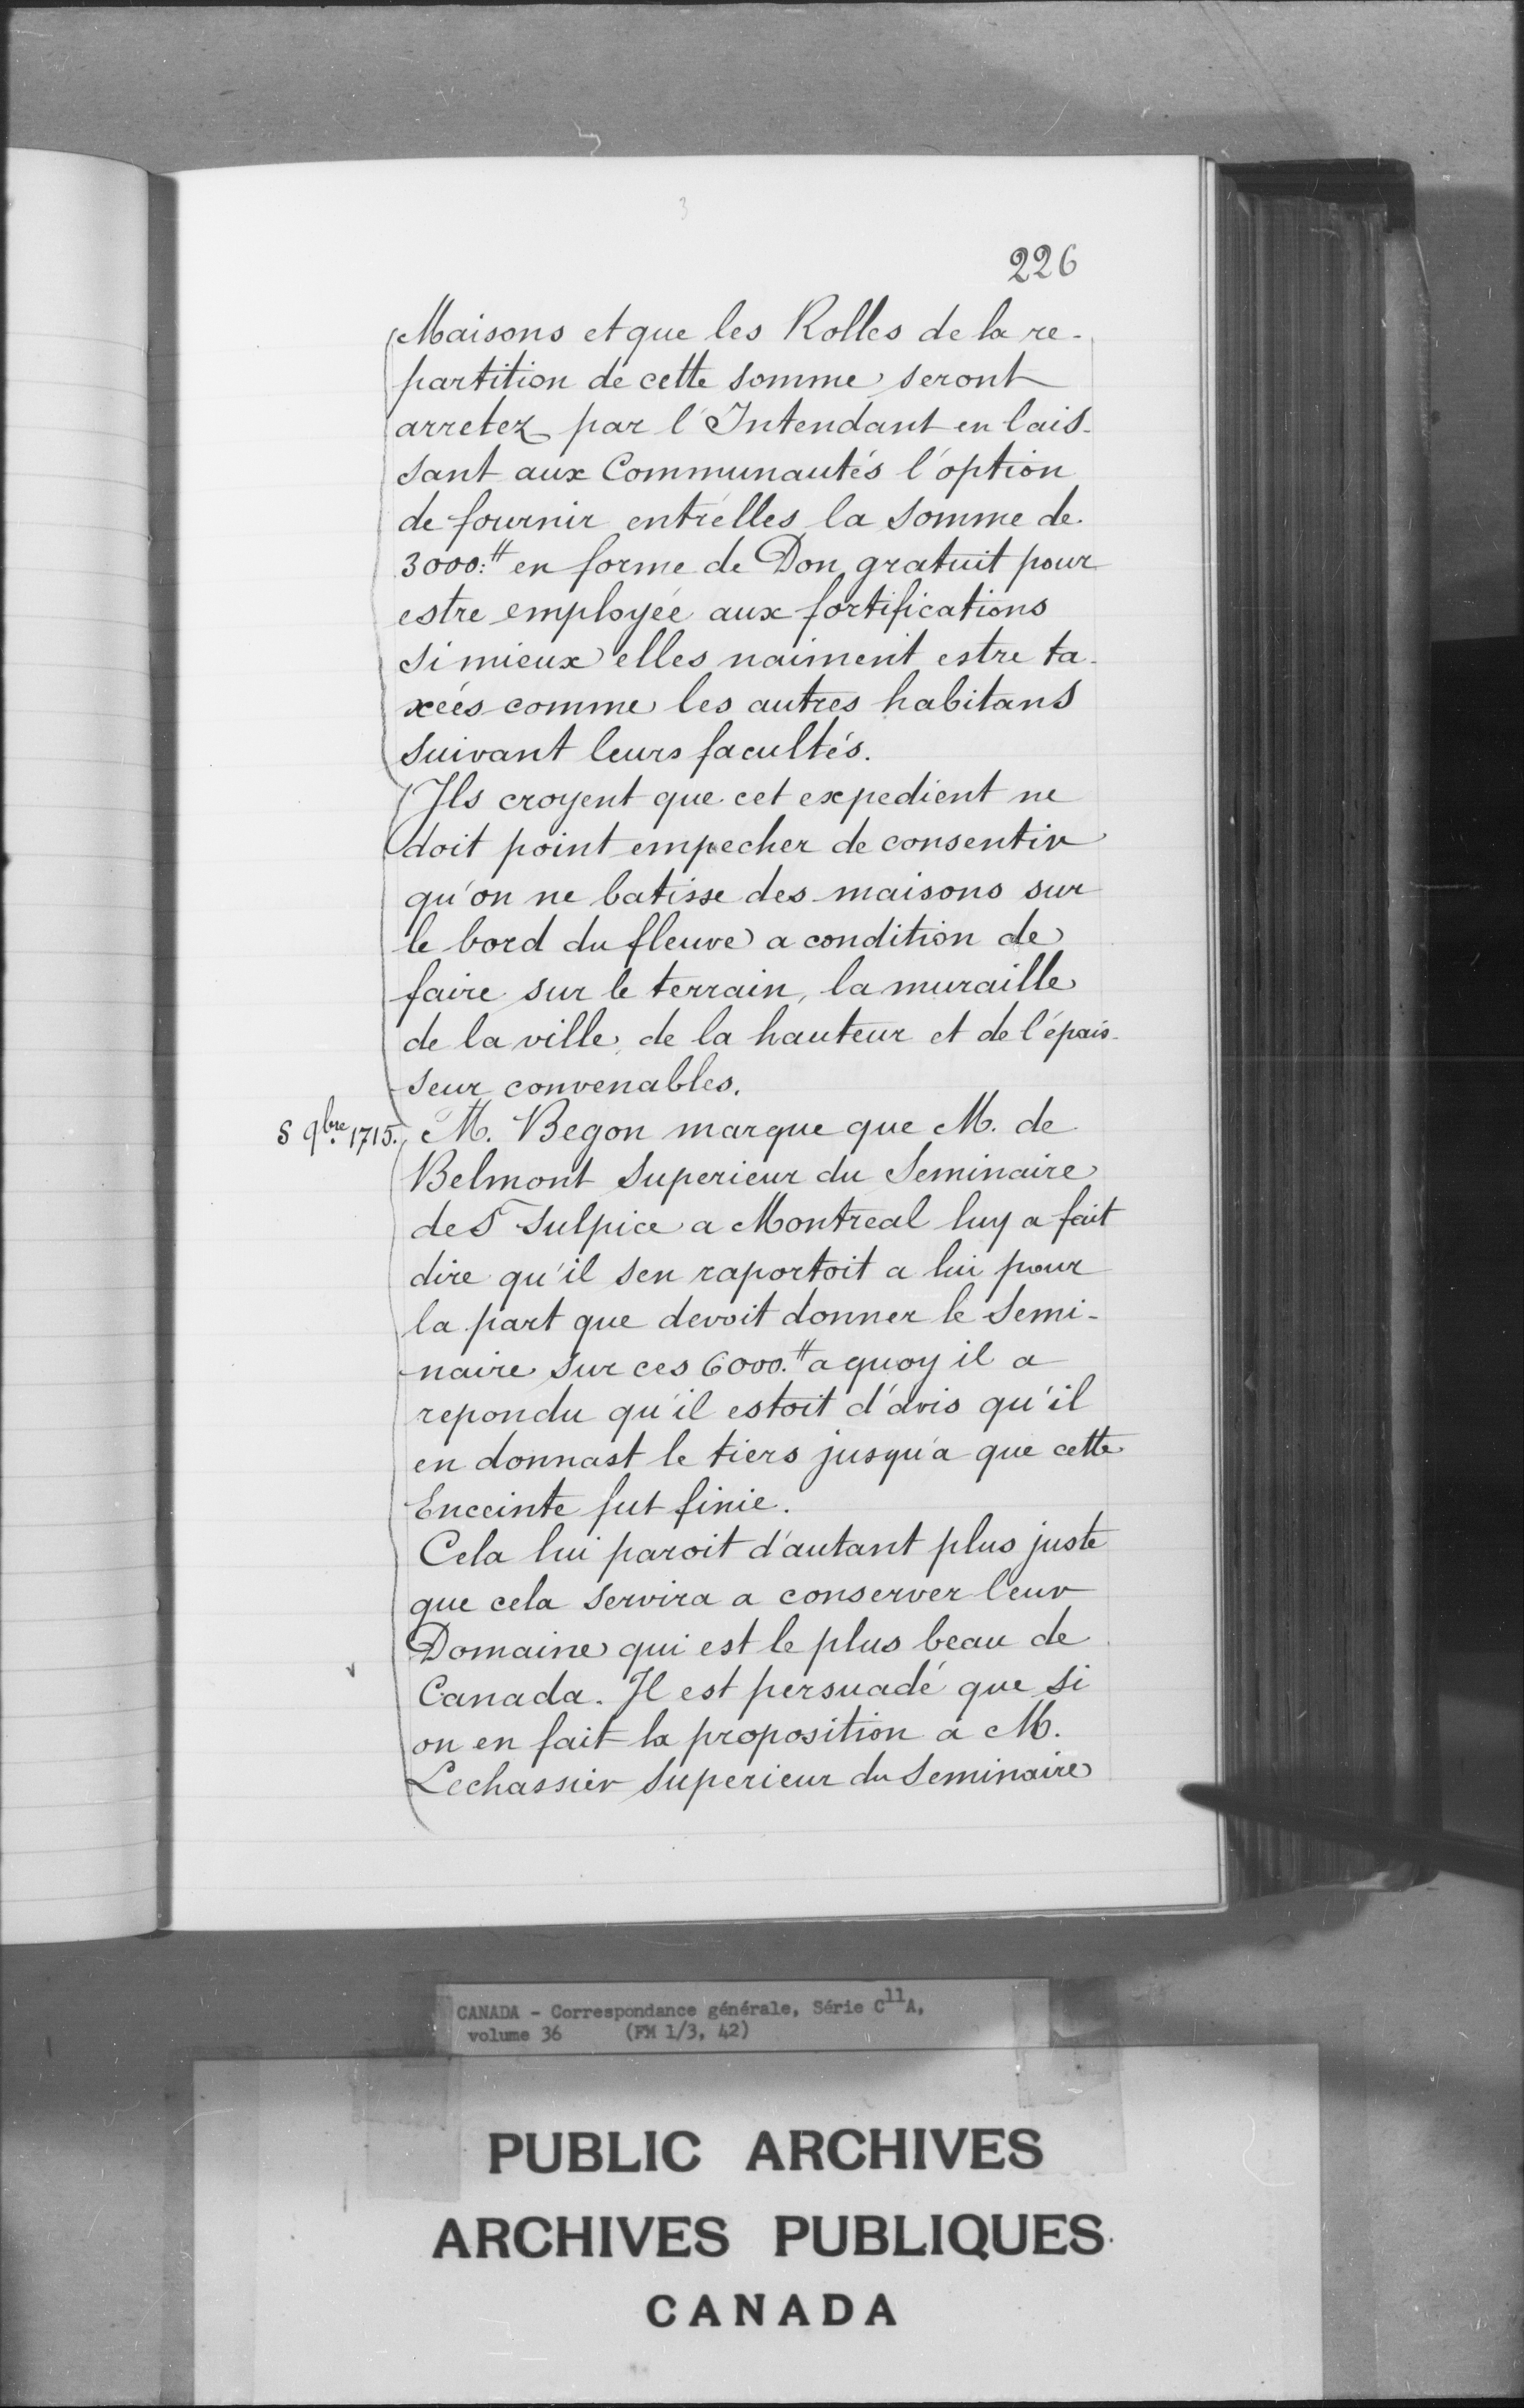 226
Maisons et que les Rolles de la re-
partition de cette somme seront
arretez par l'Intendant en lais-
sant aux Communautés l'option
de fournir entr'elles la somme de
3000:₶ en forme de Don gratuit pour
estre employée aux fortifications
si mieux elles naiment estre ta-
xées comme les autres habitans
suivant leurs facultés.
Ils croyent que cet expedient ne
doit point empecher de consentir
qu'on ne batisse des maisons sur
le bord du fleuve a condition de
faire sur le terrain, la muraille
de la ville, de la hauteur et de l'épais-
seur convenables.
8 9bre 1715. M. Begon marque que M. de
Belmont Superieur du Seminaire
de St Sulpice a Montreal luy a fait
dire qu'il sen raportoit a lui pour
la part que devoit donner le Semi-
naire sur ces 6000.₶ a quoy il a
repondu qu'il estoit d'avis qu'il
en donnast le tiers jusqu'a que cette
Enceinte fut finie.
Cela lui paroit d'autant plus juste
que cela servira a conserver leur
Domaine qui est le plus beau de
Canada. Il est persuadé que si
on en fait la proposition a M.
Lechassier superieur du Seminaire
CANADA - Correspondance générale, Série C11A,
volume 36 (FM 1/3, 42)
PUBLIC ARCHIVES
ARCHIVES PUBLIQUES
CANADA